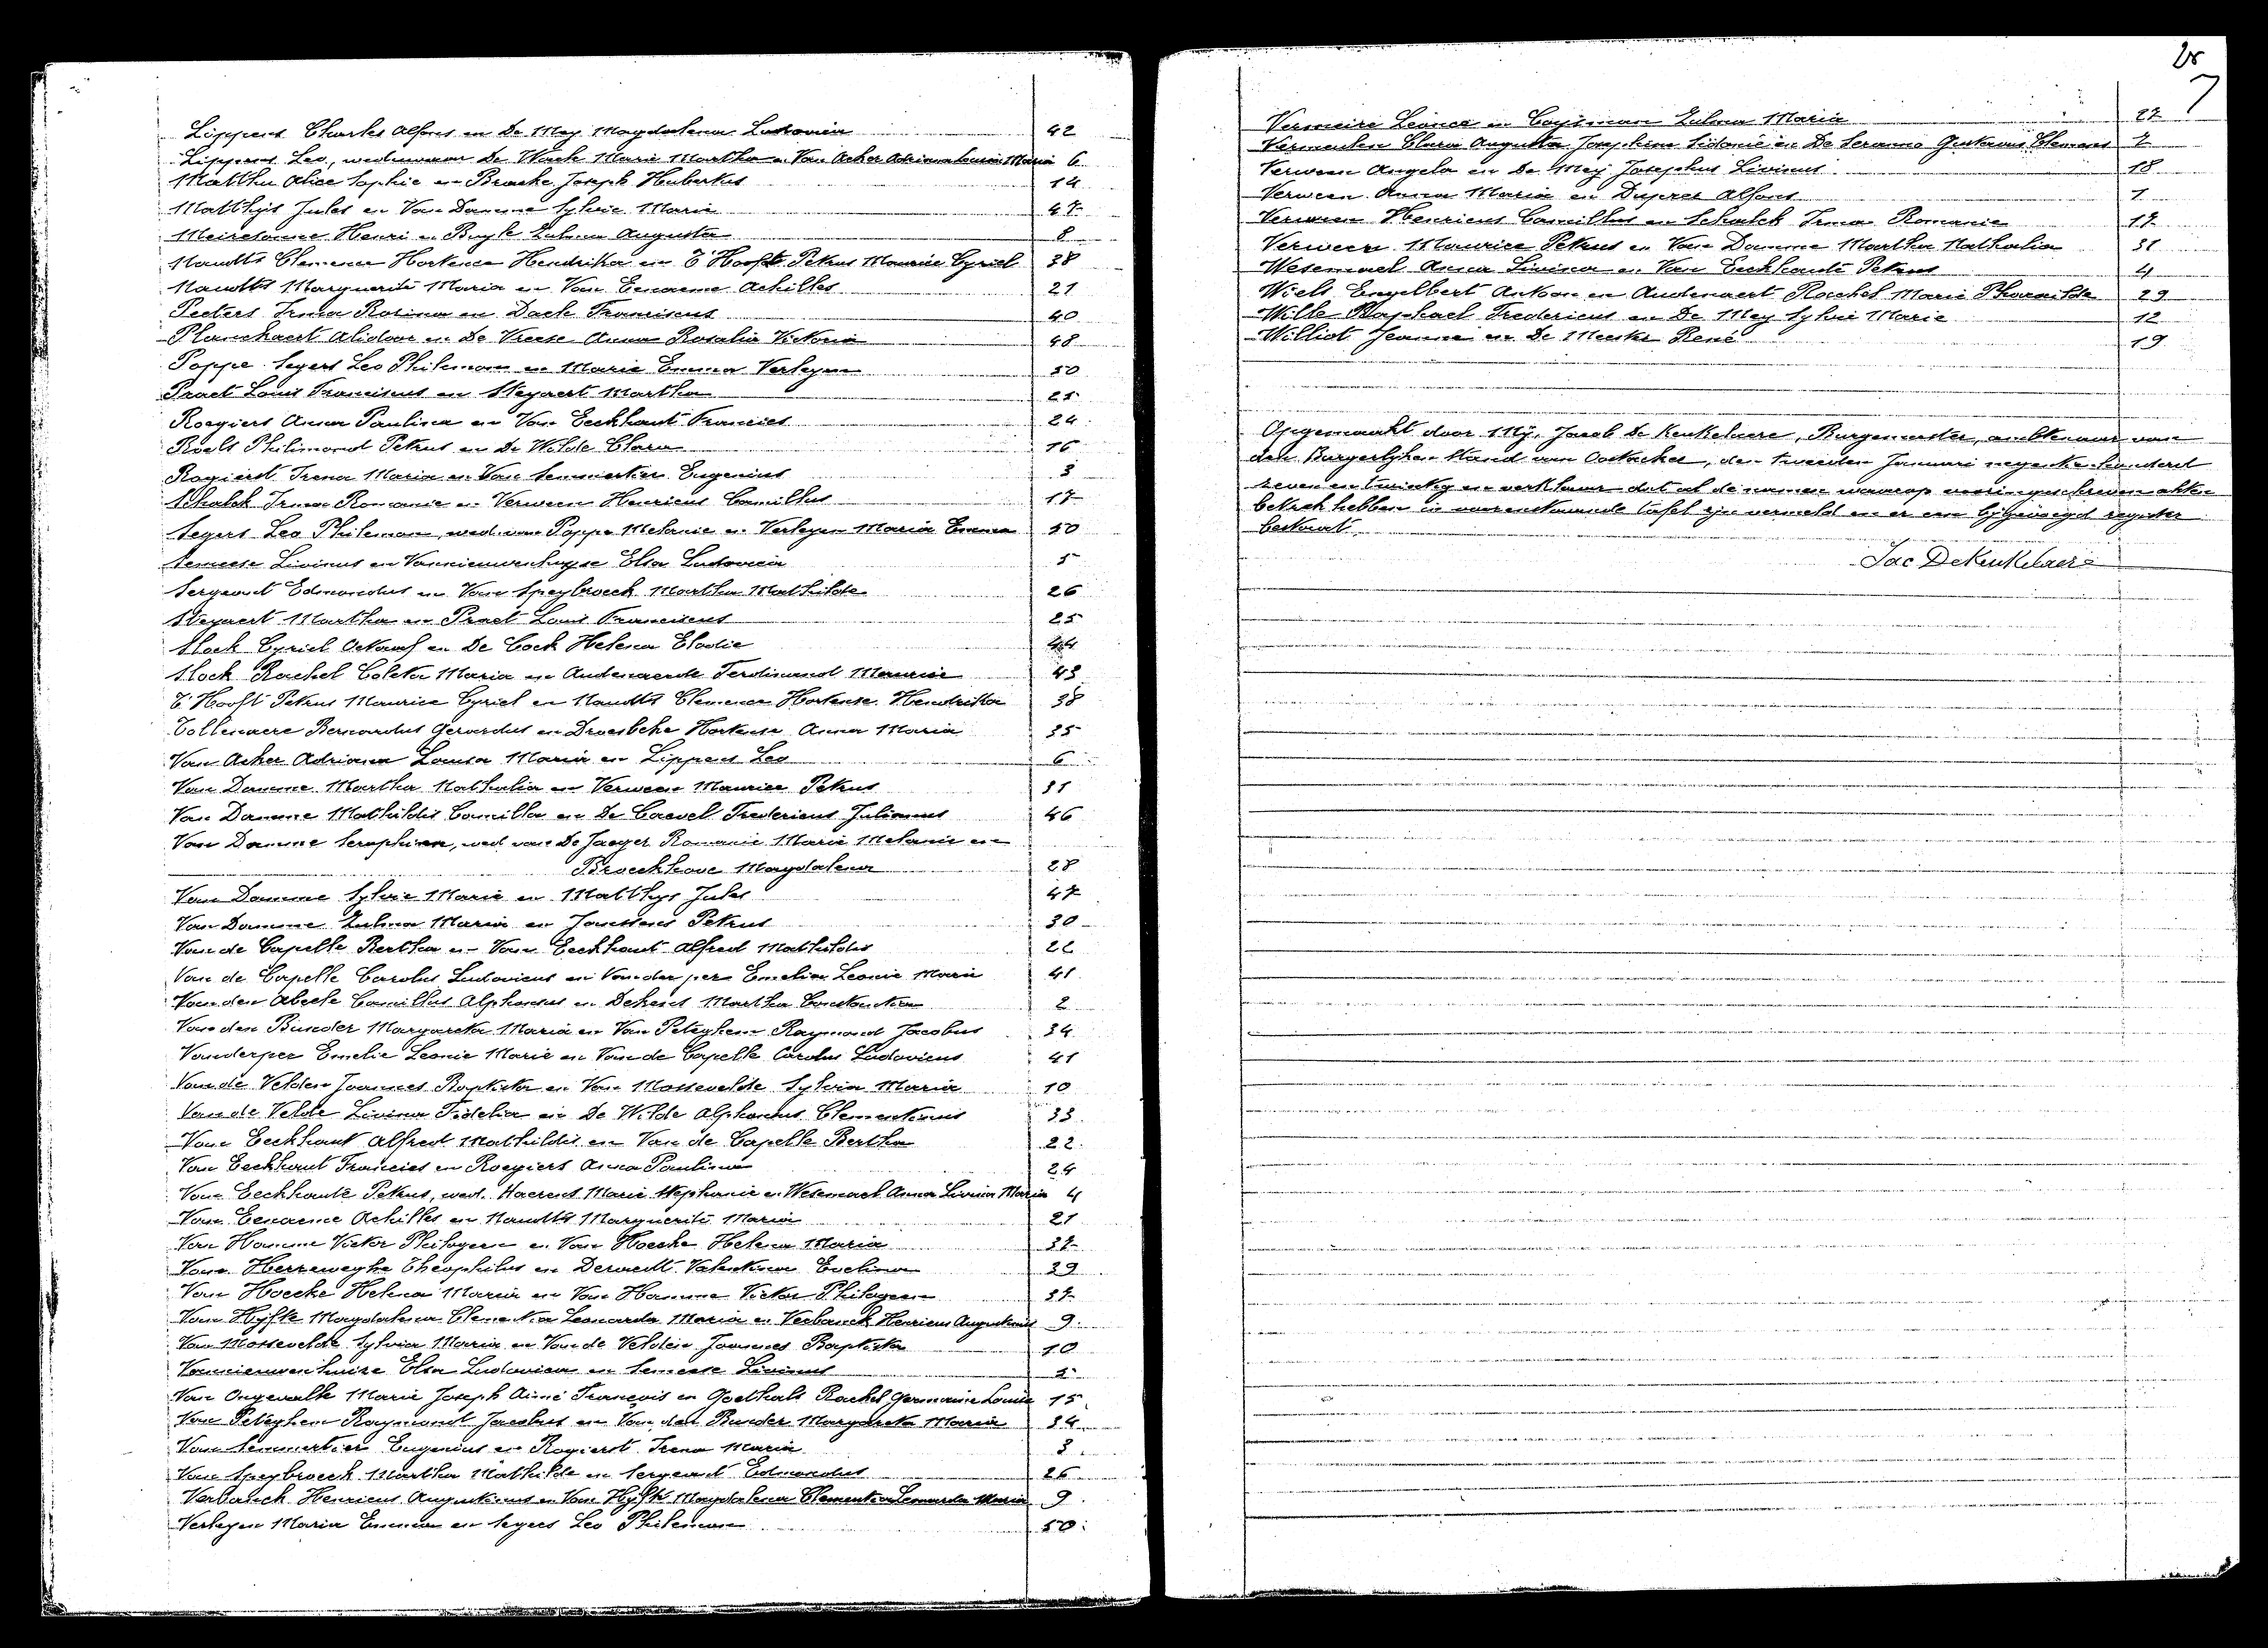 Lippens Charles Alfons en De Mey Magdalena Ludovica 42
Lippens Leo, weduwnaar De Waele Marie Martha en Van Acker Adriana Louisa Maria 6
Matthu Alice Sophie en Bracke Joseph Hubertus 14
Matthijs Jules en Van Damme Sylvie Marie 47
Meiresonne Henri en Buyle Zulma Augusta 8
Naudts Clemence Hortence Hendrika en T'Hooft Petrus Maurice Cyriel 38
Naudts Marguerite Maria en Van Eenaeme Achilles 21
Peeters Irma Rosina en Dack Franciscus 40
Planckaert Alidoor en De Vreese Anna Rosalia Victoria 48
Poppe Segers Leo Philemon en Marie Emma Verleyen 50
Praet Louis Franciscus en Steyaert Martha 25
Roegiers Anna Paulina en Van Eeckhaut Francies 24
Roels Philimond Petrus en De Wilde Clara 16
Rogierst Irena Maria en Van Semmertier Eugenius 3
Schalck Irma Romanie en Verween Henricus Camillus 17
Segers Leo Philemon, wed. van Poppe Melanie en Verleyen Maria Emma 50
Semeese Livinus en Vannieuwenhuyse Elsa Ludovica 5
Sergeant Edmondus en Van Speybroeck Martha Mathilde 26
Steyaert Martha en Praet Louis Franciscus 25
Stock Cyriel Octaaf en De Cock Helena Elodie 44
Stock Rachel Coleta Maria en Audenaerde Ferdinand Maurice 43
T'Hooft Petrus Maurice Cyriel en Naudts Clemence Hortense Hendrika 38
Tollenaere Bernardus Gerardus en Droesbeke Hortense Anna Maria 35
Van Acker Adriana Louisa Maria en Lippens Leo 6
Van Damme Martha Nathalia en Verween Maurice Petrus 31
Van Damme Mathildis Camilla en De Caevel Fredericus Julianus 46
Van Damme Seraphien, wed. van De Jaeger Romanie Marie Melanie en
Broeckhove Magdalena 28
Van Damme Sylvie Marie en Matthys Jules 47
Van Damme Zulma Maria en Janssens Petrus 30
Van de Capelle Bertha en Van Eeckhaut Alfred Mathildis 22
Van de Capelle Carolus Ludovicus en Vanderper Emelia Leonie Marie 41
Van den Abeele Camillus Alphonsus en Dekens Martha Constantina 2
Van den Bunder Margareta Maria en Van Peteghem Raymond Jacobus 34
Vanderper Emelie Leonie Marie en Van de Capelle Carolus Ludovicus 41
Van de Velden Joannes Baptista en Van Mossevelde Sylvia Maria 10
Van de Velde Livina Fidelia en De Wilde Alphonsus Clementinus 33
Van Eeckhaut Alfred Mathildis en Van de Capelle Bertha 22
Van Eeckhaut Francies en Roegiers Anna Paulina 24
Van Eeckhaute Petrus, wed. Haerens Marie Stephanie en Wesemael Anna Livina Maria 4
Van Eenaeme Achilles en Naudts Marguerite Maria 21
Van Hamme Victor Philogeen en Van Hoecke Helena Maria 37
Van Herzeweghe Theophilus en Derweedt Valentina Evelina 39
Van Hoecke Helena Maria en Van Hamme Victor Philogeen 37
Van Hyfte Magdalena Clementia Leonarda Maria en Verbauck Henricus Augustinus 9
Van Mossevelde Sylvia Maria en Van de Velden Joannes Baptista 10
Vannieuwenhuize Elsa Ludovica en Semeese Livinus 5
Van Ongevalle Marie Joseph Aimé François en Goethals Rachel Germaine Louise 15
Van Peteghem Raymond Jacobus en Van den Bunder Margareta Maria 34
Van Semmertier Eugenius en Rogierst Irena Maria 3
Van Speybroeck Martha Mathilde en Sergeant Edmondus 26
Verbauck Henricus Augustinus en Van Hyfte Magdalena Clementia Leonarda Maria 9
Verleyen Maria Emma en Segers Leo Philemon 50
Vermeire Leonce en Coysman Zulma Maria 27
Vermeulen Clara Augusta Josephina Sidonie en De Seranno Gustavus Clemens 7
Verween Angela en De Mey Josephus Livinus 18
Verween Anna Maria en Duprez Alfons 1
Verween Henricus Camillus en Schalck Irma Romanie 17
Verween Maurice Petrus en Van Damme Martha Nathalia 31
Wesemael Anna Livina en Van Eeckhaute Petrus 4
Wiels Engelbert Antoon en Audenaert Rachel Marie Pharaïlde 29
Wille Raphael Fredericus en De Mey Sylvie Marie 12
Williot Jeanne en De Meeske René 19
Opgemaakt door Mij, Jacob De Keukelaere, Burgemeester, ambtenaar van
den Burgerlyken Stand van Oostacker, den tweeden Januari negentienhonderd
zeven en twintig en verklaar dat al de namen waarop vooringeschreven akten
betrek hebben in voorenstaande tafel zijn vermeld en er een bijgevoegd register
bestaat.
Jac DeKeukelaere